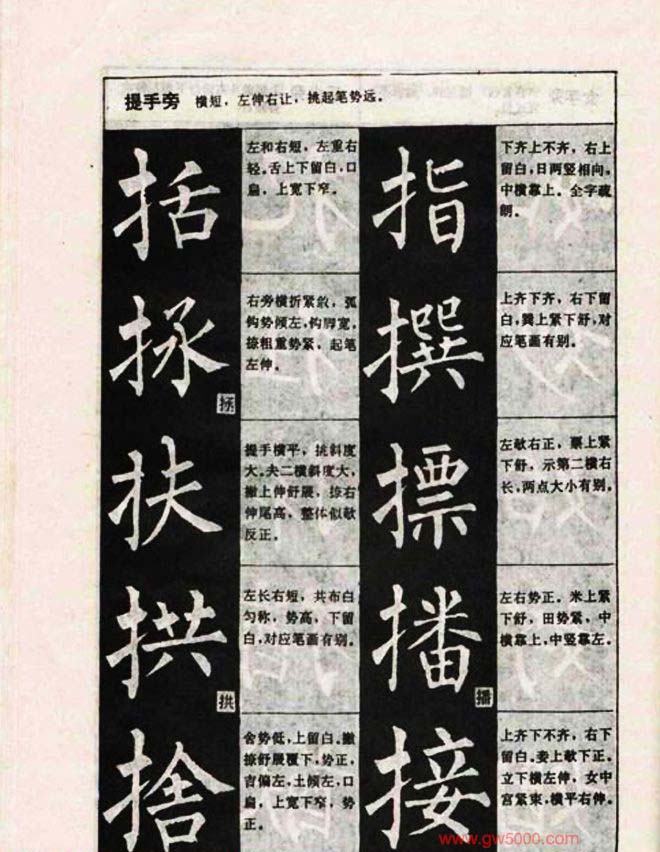 提手旁 横短，左伸右让，挑起笔势远。
括
左和右短，左重右
轻。舌上下留白，口
扁，上宽下窄。
指
下齐上不齐，右上
留白，日两竖相向，
中横靠上。全字疏
朗。
拯
拯
右旁横折紧敛，弧
钩势倾左，钩脚宽，
捺粗重势紧，起笔
左伸。
撰
上齐下齐，右下留
白，巽上紧下舒，对
应笔画有别。
扶
提手横平，挑斜度
大。夫二横斜度大，
撇上伸舒展，捺右
伸尾高，整体似欹
反正。
摽
左欹右正，票上紧
下舒，示第二横右
长，两点大小有别。
拱
拱
左长右短，共布白
匀称，势高，下留
白，对应笔画有别。
播
播
左右势正。米上紧
下舒，田势紧，中
横靠上，中竖靠左。
捨
舍势低，上留白。撇
捺舒展覆下，势正，
吉偏左，土倾左，口
扁，上宽下窄，势
正。
接
上齐下不齐，右下
留白。妾上欹下正。
立下横左伸，女中
宫紧束，横平右伸。
www.gw5000.com